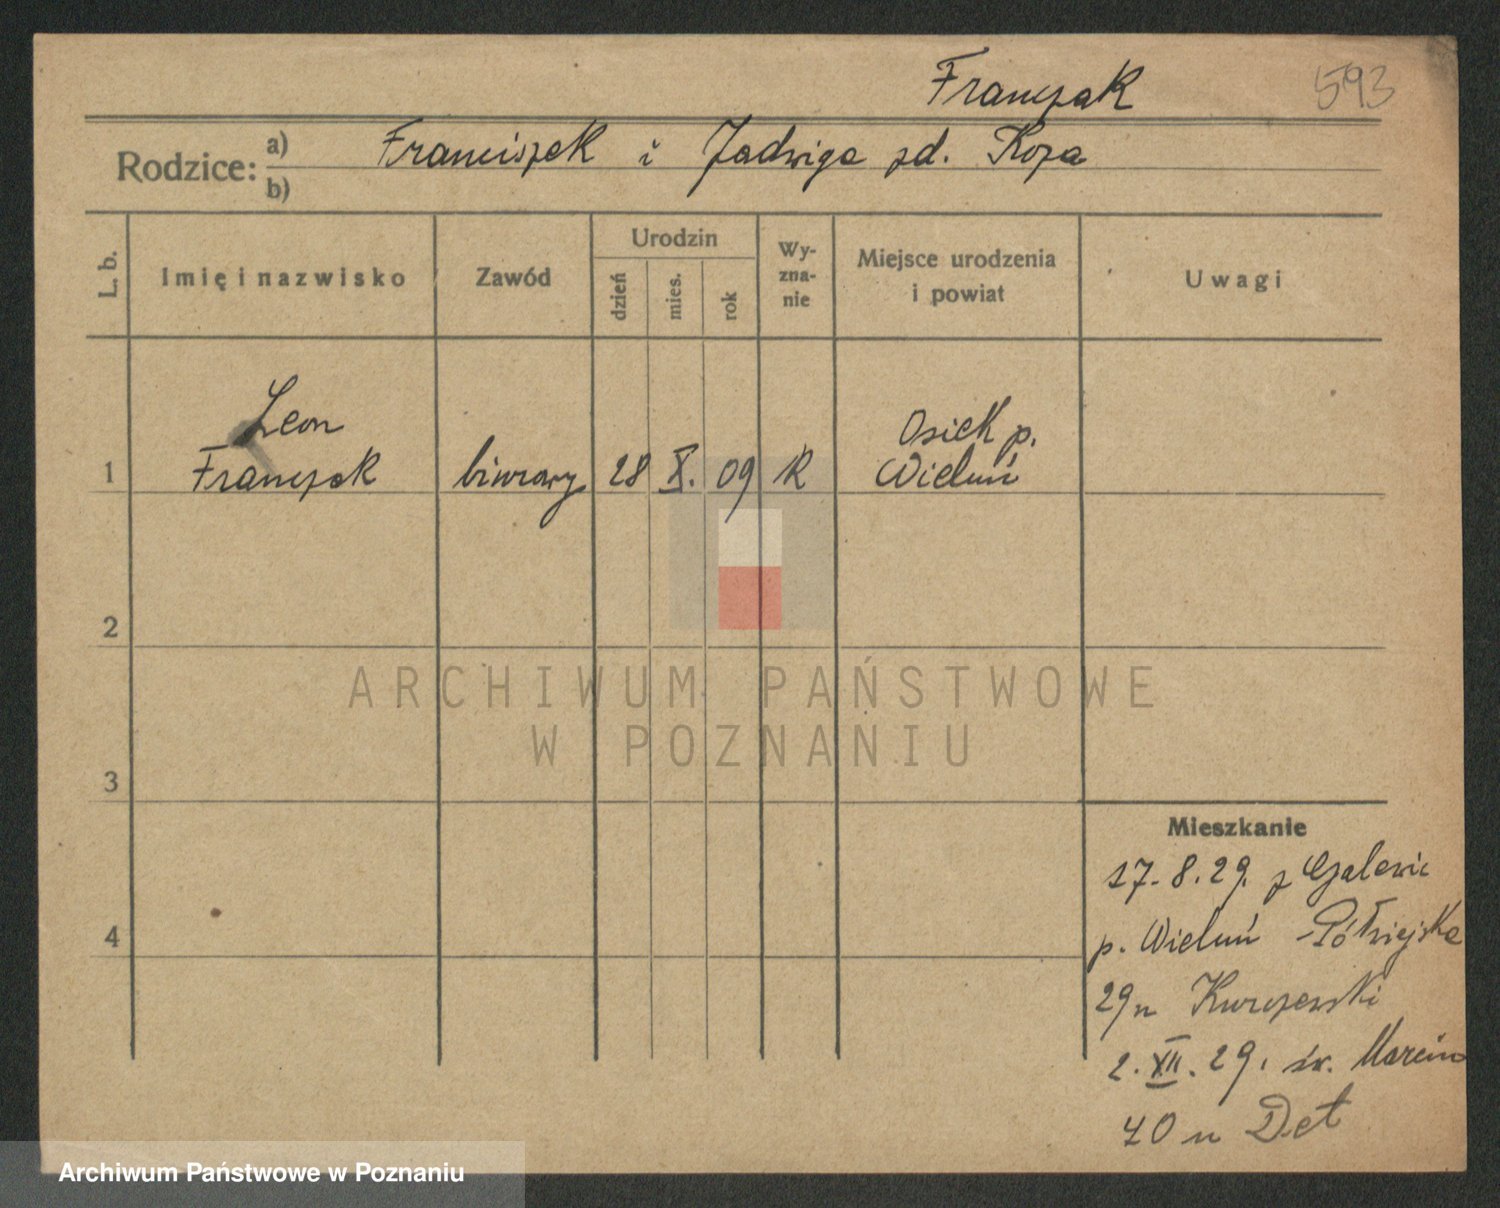 Franczak 593
Rodzice: a) Franciszek i Jadwiga zd. Koza
b)
L. b. Imię i nazwisko Zawód Urodzin dzień mies. rok Wyzna-nie Miejsce urodzenia i powiat Uwagi
Leon Osiek p.
1 Franczak biurowy 28 X. 09 R Wieluń
2
ARCHIWUM PAŃSTWOWE
W POZNANIU
3
Mieszkanie
17. 8. 29. z Galewic
4 p. Wieluń Półwiejska
29 u Kurczewski
2. XII. 29. św. Marcin
40 u Det
Archiwum Państwowe w Poznaniu